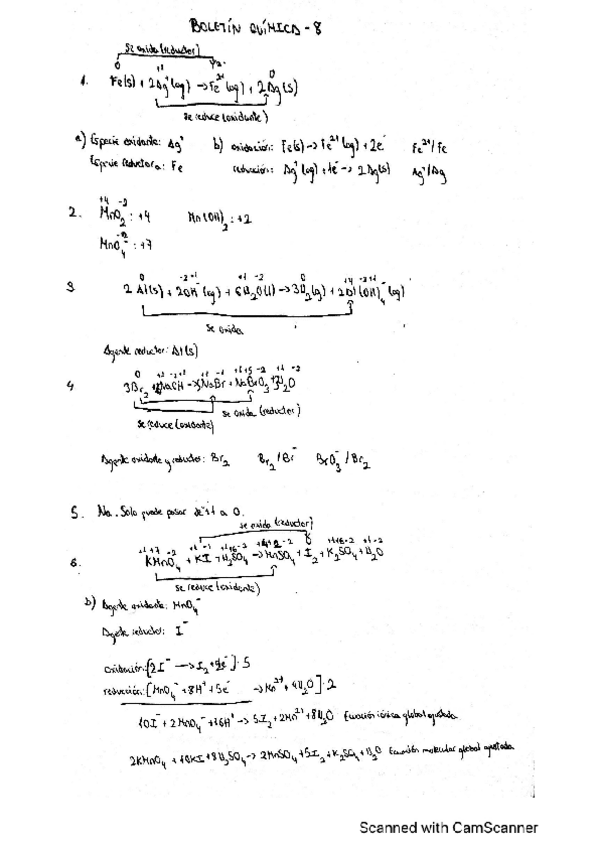 BOLETÍN QUÍMICA - 8
se oxida (reductor)
0 +1 +2 0
1. Fe(s) + 2Ag⁺(aq) → Fe²⁺(aq) + 2Ag(s)
se reduce (oxidante)
a) Especie oxidante: Ag⁺ b) oxidación: Fe(s) → Fe²⁺(aq) + 2e⁻ Fe²⁺/Fe
Especie reductora: Fe reducción: Ag⁺(aq) + 1e⁻ → 2Ag(s) Ag⁺/Ag
+4 -2
2. MnO₂ : +4 Mn(OH)₂ : +2
MnO₄⁻ : +7
0 -2 +1 +1 -2 0
3 2Al(s) + 2OH⁻(aq) + 6H₂O(l) → 3H₂(g) + 2Al(OH)₄⁻(aq)
se oxida
Agente reductor: Al(s)
4 3Br₂ + NaOH → 5NaBr + NaBrO₃ + 3H₂O
se oxida (reductor)
se reduce (oxidante)
Agente oxidante y reductor: Br₂ Br₂/Br⁻ BrO₃⁻/Br₂
5. No. Solo puede pasar de +1 a 0.
se oxida (reductor)
6. KMnO₄ + KI + H₂SO₄ → MnSO₄ + I₂ + K₂SO₄ + H₂O
se reduce (oxidante)
b) Agente oxidante: MnO₄⁻
Agente reductor: I⁻
oxidación: [2I⁻ → I₂ + e⁻] · 5
reducción: [MnO₄⁻ + 8H⁺ + 5e⁻ → Mn²⁺ + 4H₂O] · 2
10I⁻ + 2MnO₄⁻ + 16H⁺ → 5I₂ + 2Mn²⁺ + 8H₂O Ecuación iónica global ajustada
2KMnO₄ + 10KI + 8H₂SO₄ → 2MnSO₄ + 5I₂ + K₂SO₄ + H₂O Ecuación molecular global ajustada
Scanned with CamScanner